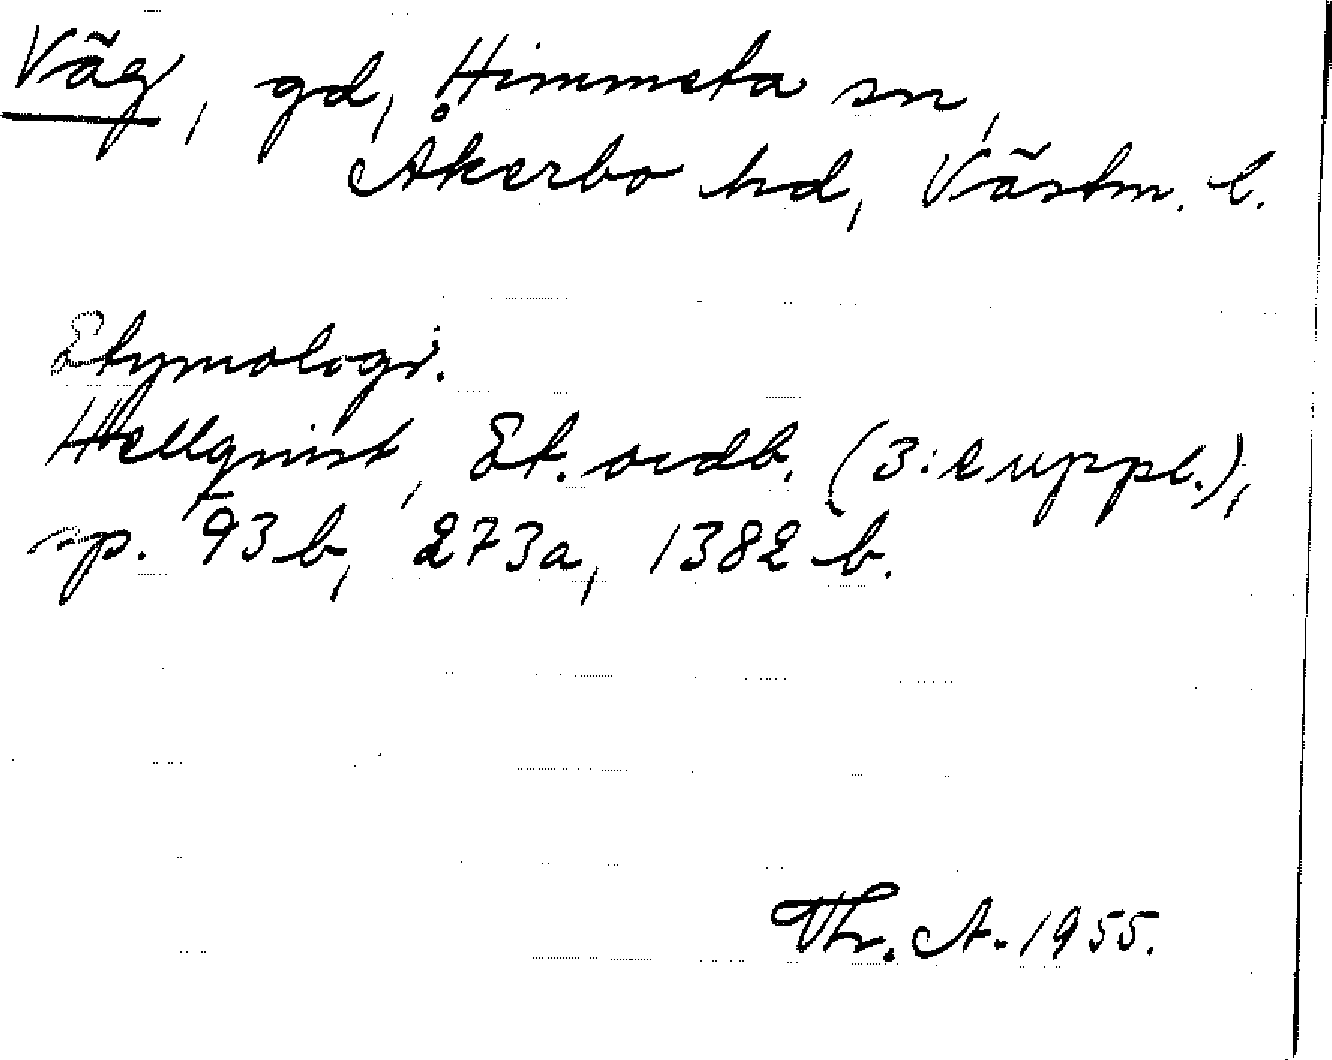 Väg, gd, Himmeta sn,
Åkerbo hd, Västm. l.
Etymologi.
Hellquist, Et. ordb. (3:e uppl.),
sp. 93 b, 273a, 1382 b.
Th. A. 1955.